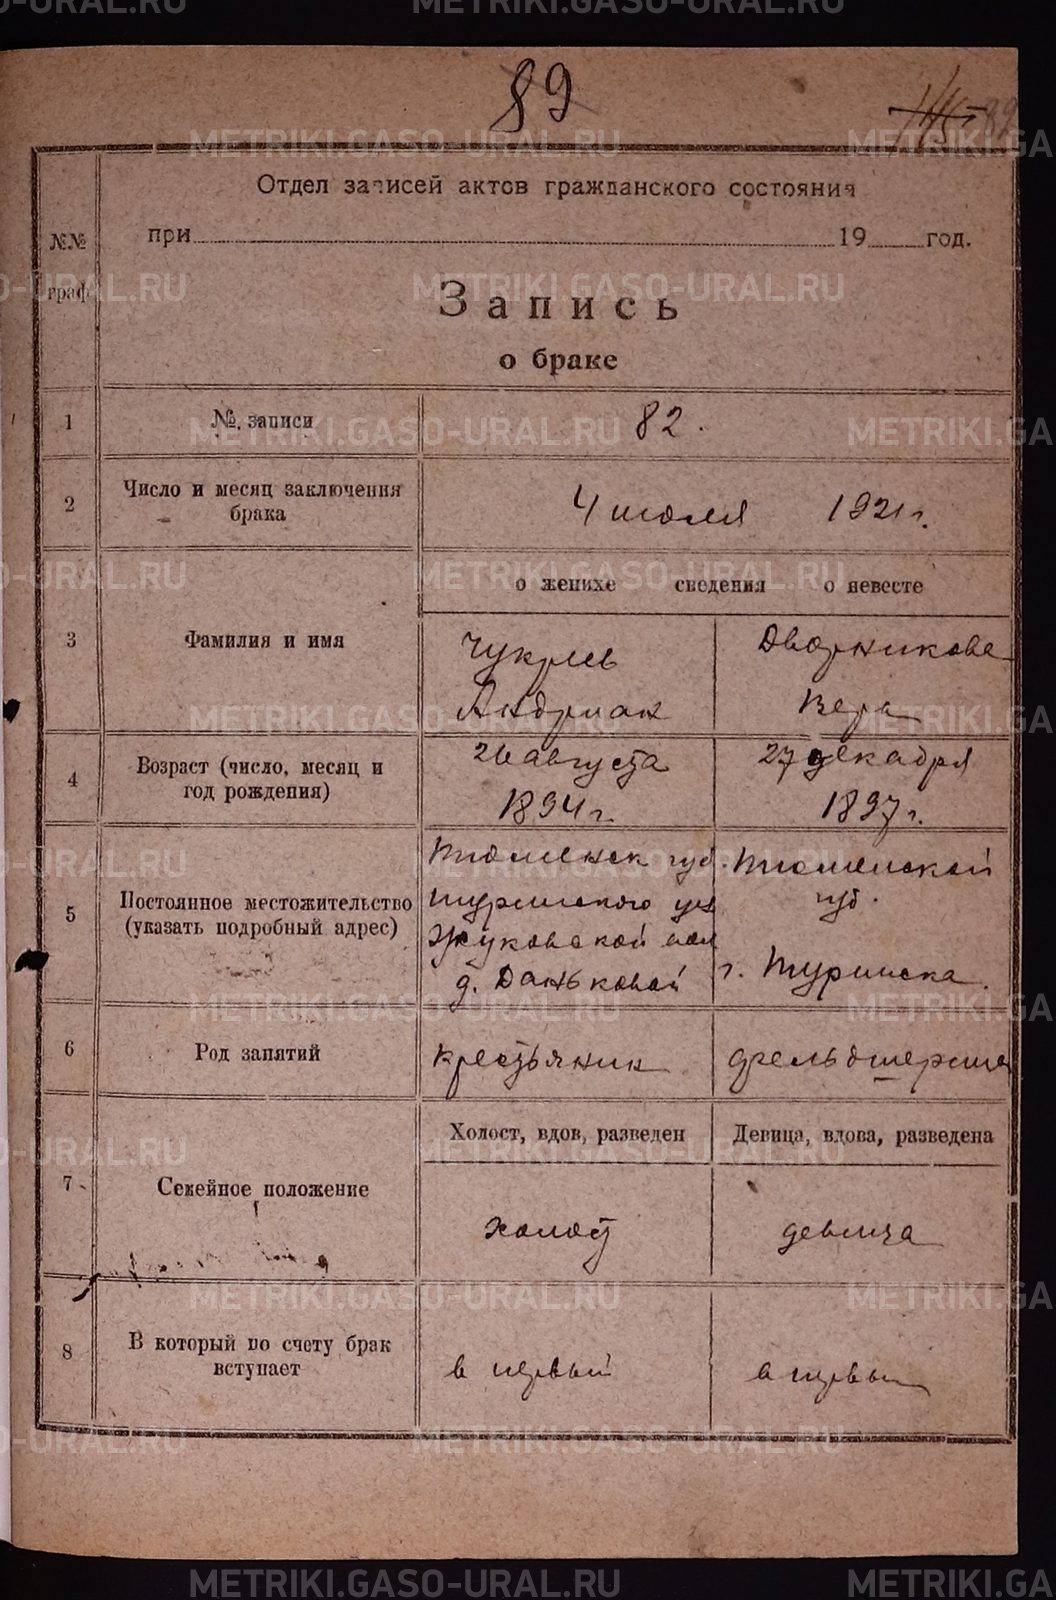 METRIKI.GASO-URAL.RU
89
Отдел записей актов гражданского состояния
при 19 год.
№№ граф
Запись
о браке
1 №. записи 82.
2 Число и месяц заключения брака 4 июля 1921 г.
о женихе сведения о невесте
3 Фамилия и имя
Чукреев Дворникова
Андриан Вера
4 Возраст (число, месяц и год рождения)
26 августа 27 декабря
1894 г. 1897 г.
5 Постоянное местожительство (указать подробный адрес)
Тюменск губ. Тюменской
Туринского уез губ.
Жуковской вол
д. Даньковой г. Туринска.
6 Род занятий крестьянин фельдшерица
Холост, вдов, разведен Девица, вдова, разведена
7 Семейное положение холост девица
8 В который по счету брак вступает в первый в первый